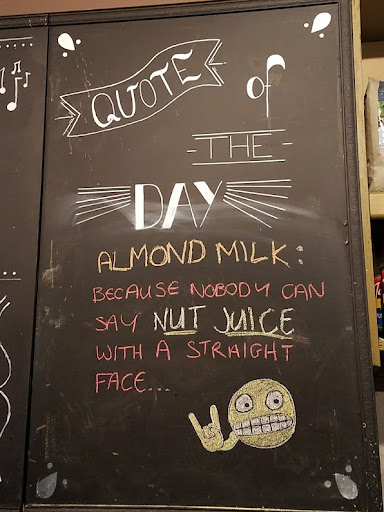 QUOTE
of
- THE -
DAY
ALMOND MILK:
BECAUSE NOBODY CAN
SAY NUT JUICE
WITH A STRAIGHT
FACE...